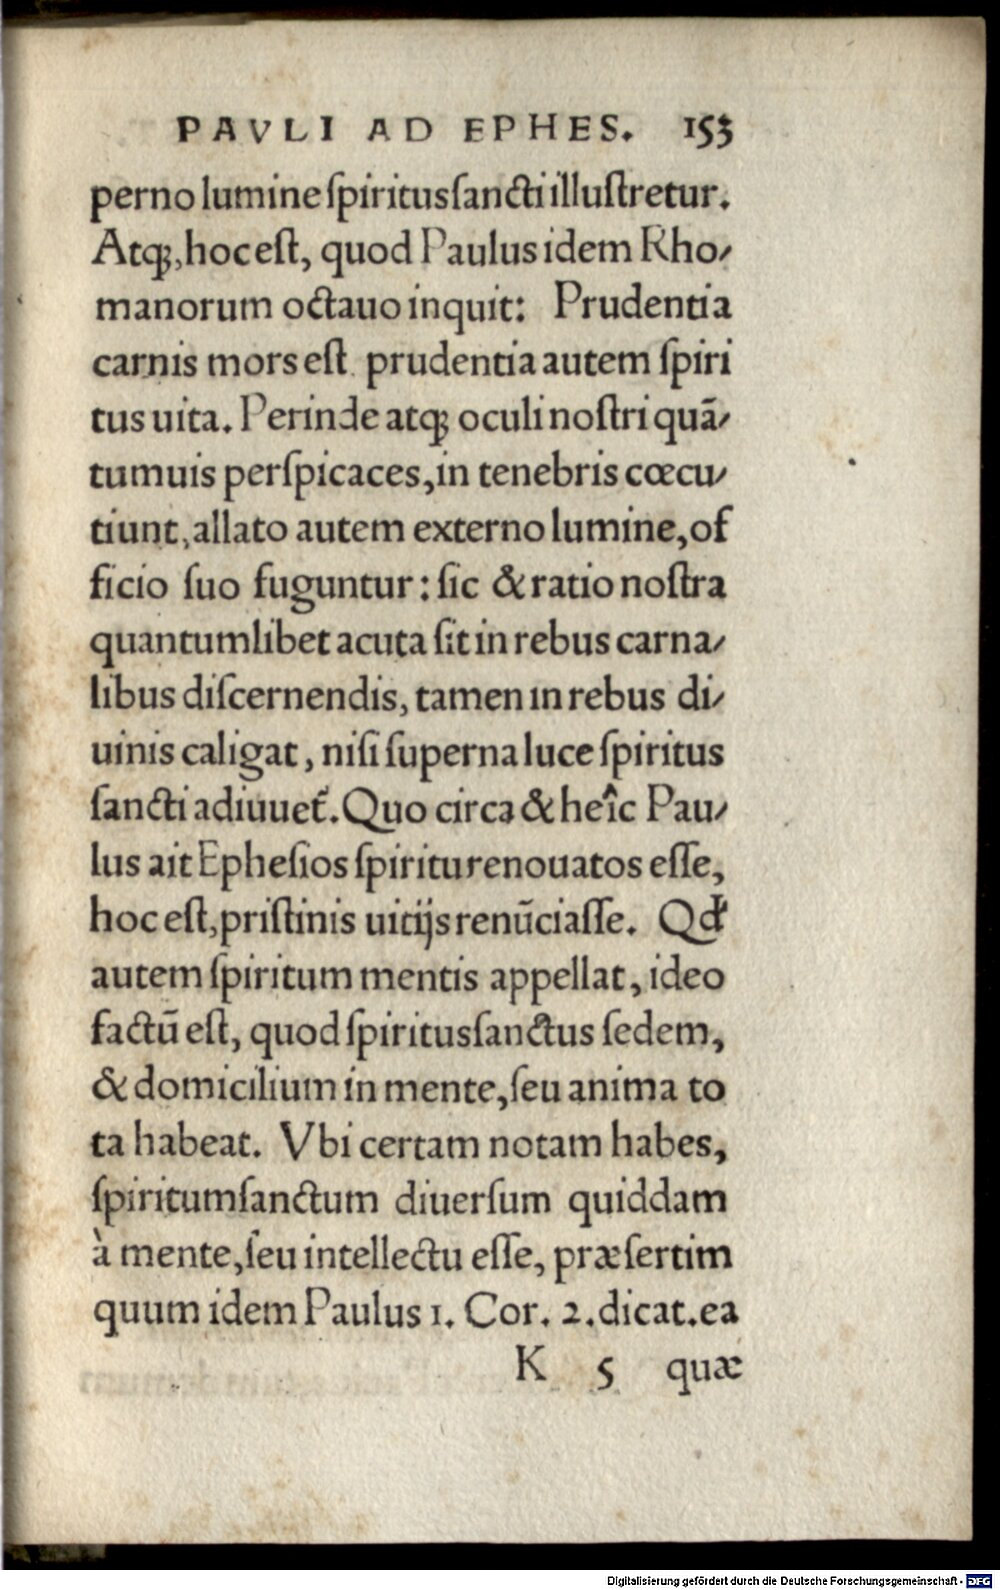 PAVLI AD EPHES. 153
perno lumine ſpiritus ſancti illuſtretur.
Atq;, hoc eſt, quod Paulus idem Rho-
manorum octauo inquit: Prudentia
carnis mors eſt. prudentia autem ſpiri
tus uita. Perinde atq; oculi noſtri quā-
tumuis perſpicaces, in tenebris cœcu-
tiunt, allato autem externo lumine, of
ficio ſuo fuguntur: ſic & ratio noſtra
quantumlibet acuta ſit in rebus carna-
libus diſcernendis, tamen in rebus di-
uinis caligat, niſi ſuperna luce ſpiritus
ſancti adiuuet᷑. Quo circa & heîc Pau-
lus ait Epheſios ſpiritu renouatos eſſe,
hoc eſt, priſtinis uitijs renūciaſſe. Qđ
autem ſpiritum mentis appellat, ideo
factū eſt, quod ſpiritusſanctus ſedem,
& domicilium in mente, ſeu anima to
ta habeat. Vbi certam notam habes,
ſpiritumſanctum diuerſum quiddam
à mente, ſeu intellectu eſſe, præſertim
quum idem Paulus 1. Cor. 2. dicat. ea
K 5 quæ
Digitalisierung gefördert durch die Deutsche Forschungsgemeinschaft - DFG